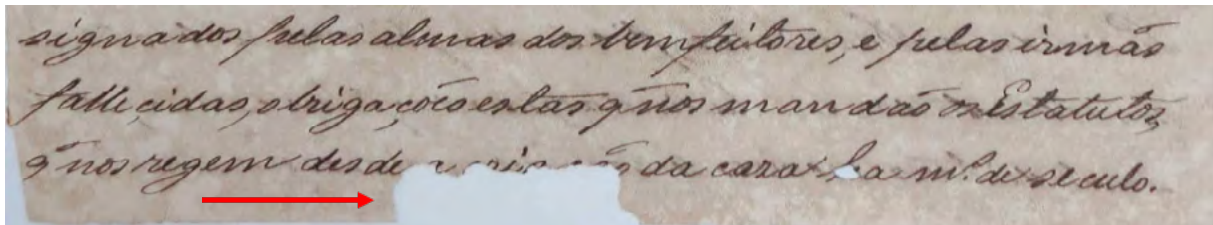 signados pelas almas dos bemfeitores, e pelas irmãs
fallecidas, obrigações estas q̃ nos mandaõ os Estatutos,
q̃ nos regem desde a criação da caza ha m.º de seculo.